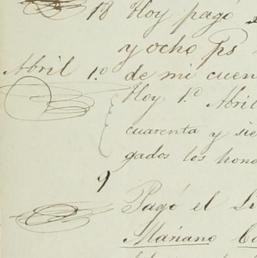 18 Hoy pagó
y ocho ps
Abril 1.o de mi cuen
Hoy 1.o Abril
cuarenta y sie
gados los hono
9
Pagó el
Mariano